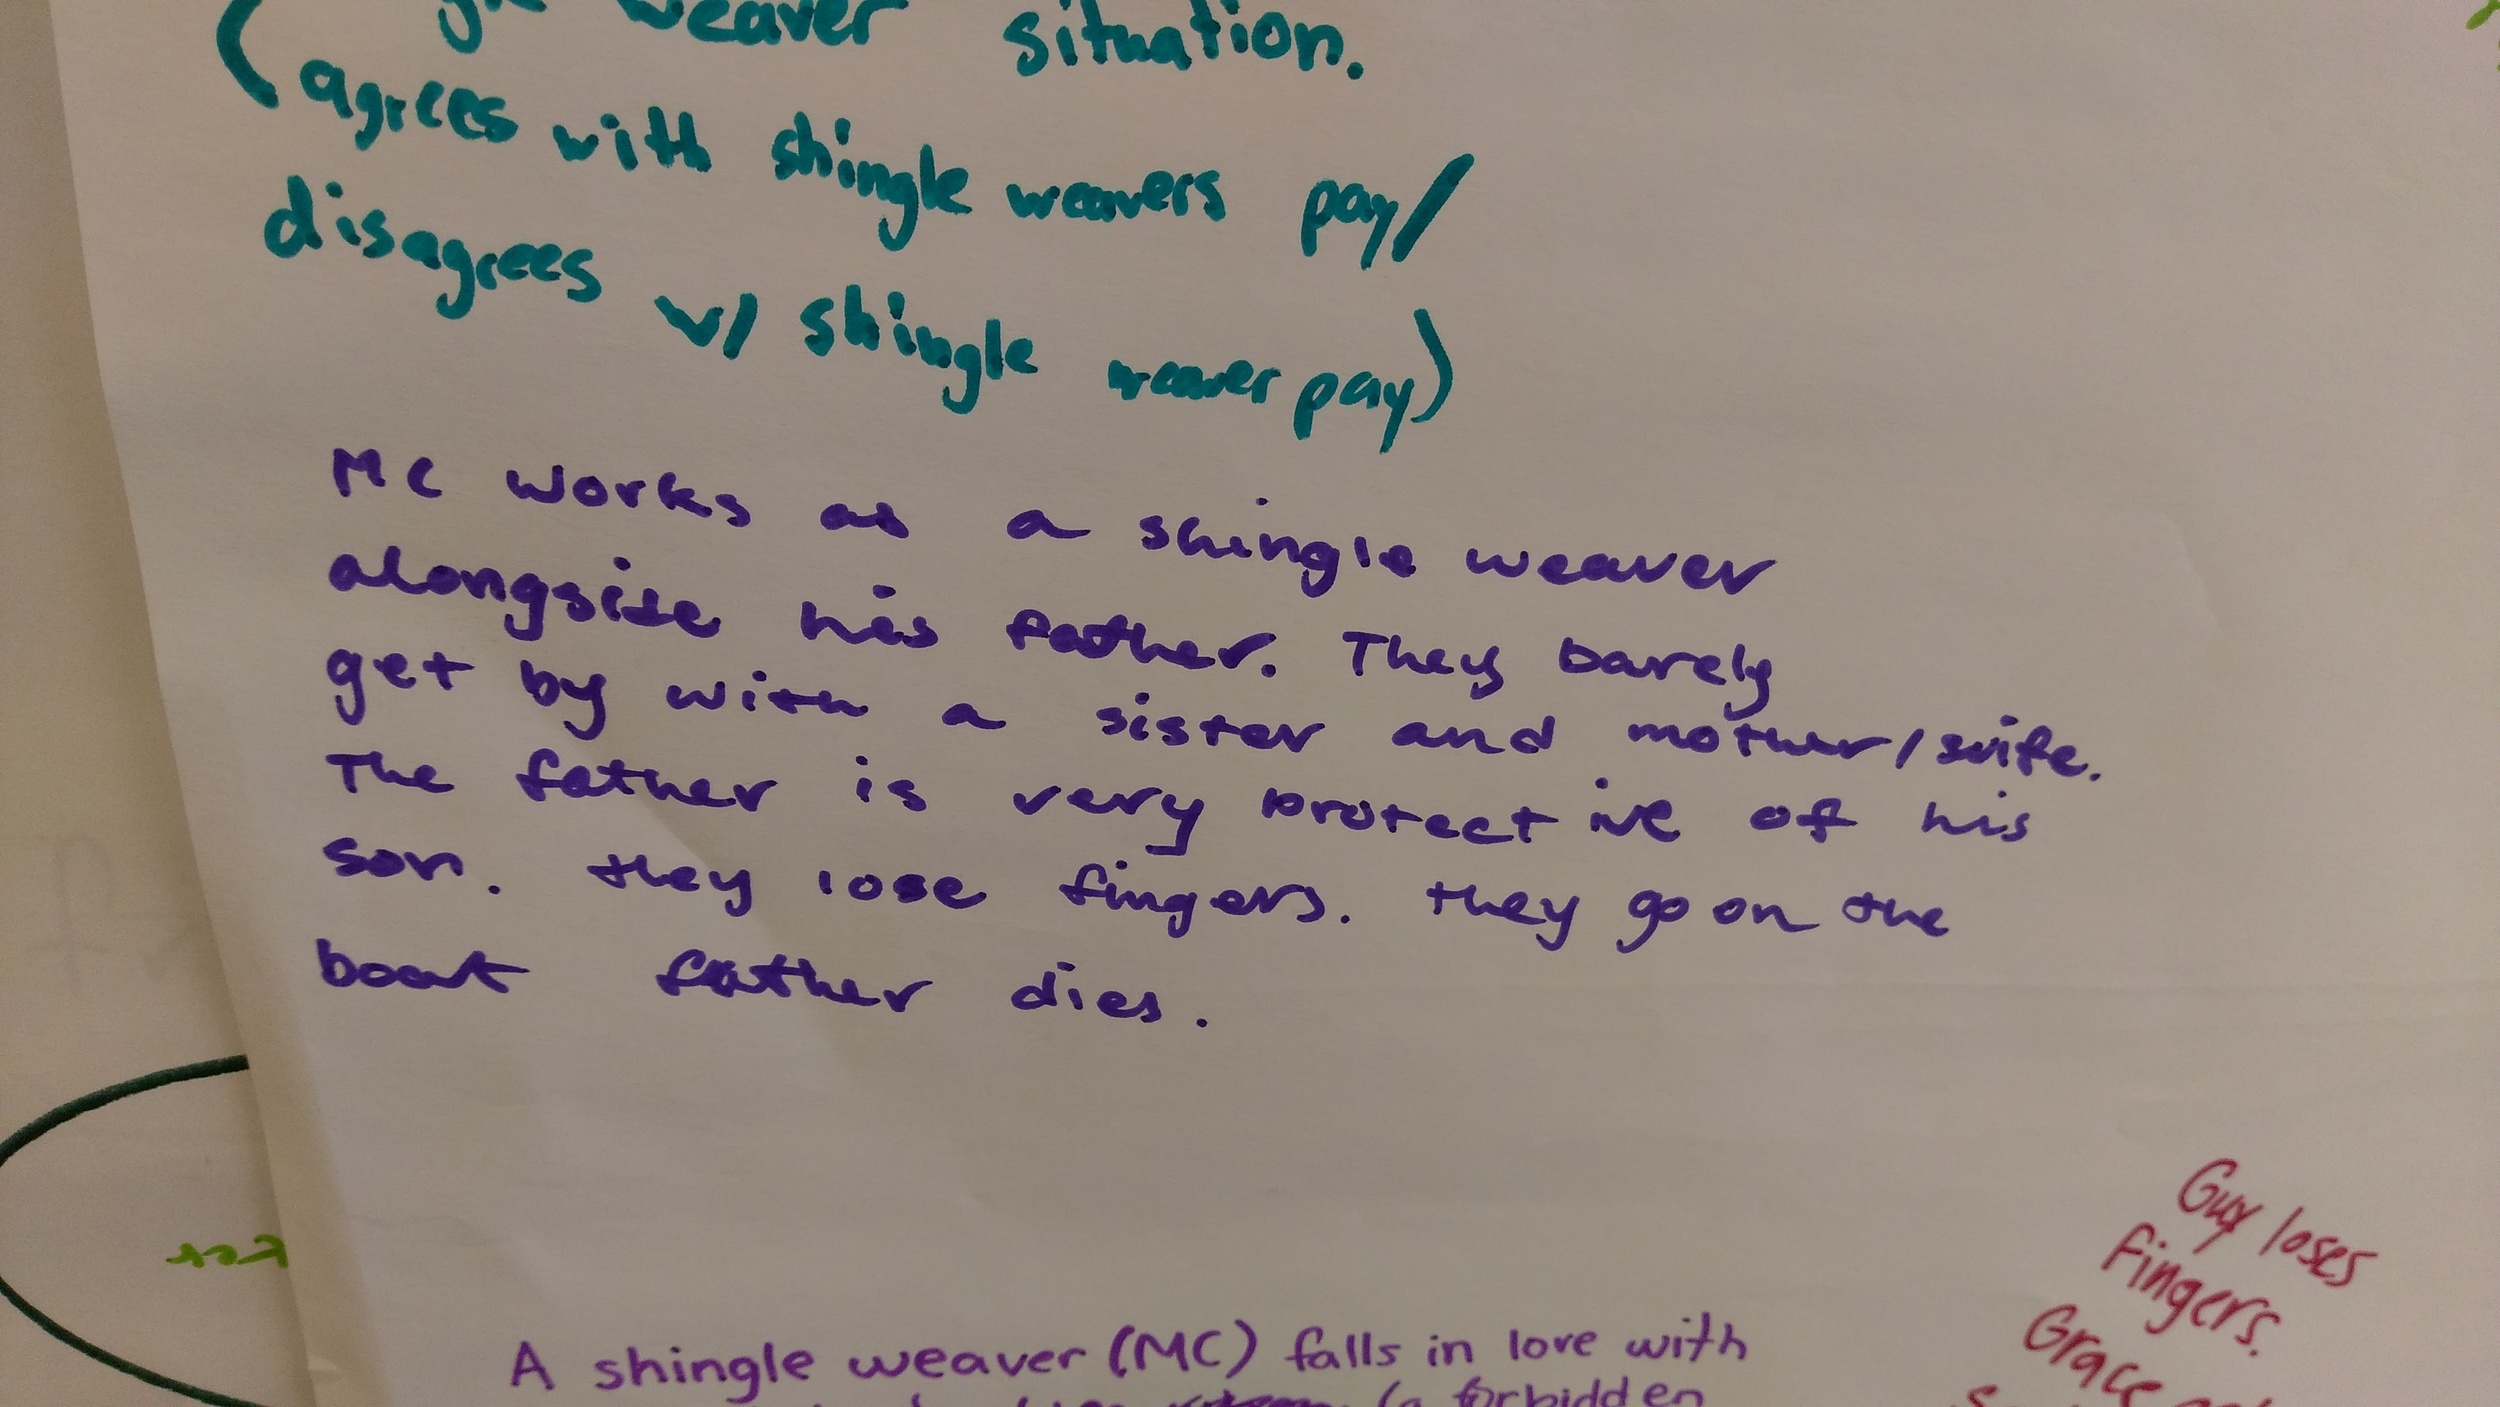 weaver situation.
(agrees with shingle weavers pay/
disagrees w/ shingle weaver pay)
MC works as a shingle weaver
alongside his father. They barely
get by with a sister and mother/wife.
The father is very protective of his
son. they lose fingers. they go on the
boat father dies.
Guy loses
fingers.
Grace
A shingle weaver (MC) falls in love with
(a forbidden